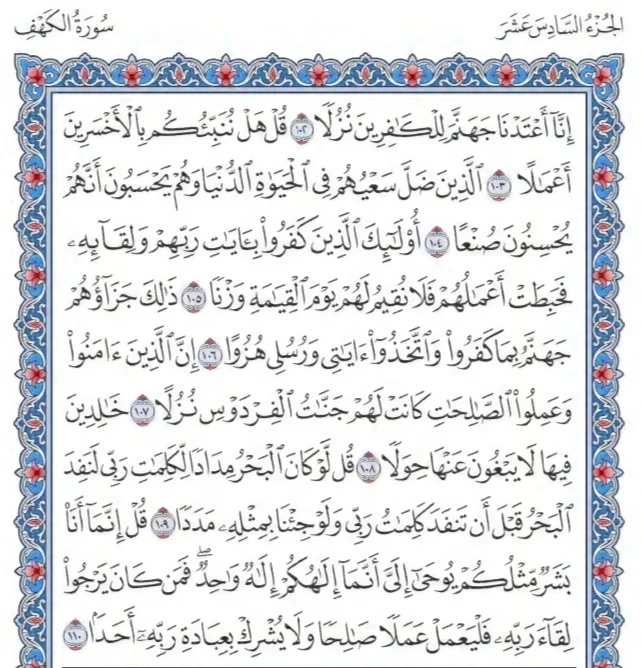 الجُزْءُ السَّادِسَ عَشَرَ
سُورَةُ الكَهْفِ
إِنَّآ أَعْتَدْنَا جَهَنَّمَ لِلْكَٰفِرِينَ نُزُلًا ١٠٢ قُلْ هَلْ نُنَبِّئُكُم بِٱلْأَخْسَرِينَ
أَعْمَٰلًا ١٠٣ ٱلَّذِينَ ضَلَّ سَعْيُهُمْ فِى ٱلْحَيَوٰةِ ٱلدُّنْيَا وَهُمْ يَحْسَبُونَ أَنَّهُمْ
يُحْسِنُونَ صُنْعًا ١٠٤ أُو۟لَٰٓئِكَ ٱلَّذِينَ كَفَرُوا۟ بِـَٔايَٰتِ رَبِّهِمْ وَلِقَآئِهِۦ
فَحَبِطَتْ أَعْمَٰلُهُمْ فَلَا نُقِيمُ لَهُمْ يَوْمَ ٱلْقِيَٰمَةِ وَزْنًا ١٠٥ ذَٰلِكَ جَزَآؤُهُمْ
جَهَنَّمُ بِمَا كَفَرُوا۟ وَٱتَّخَذُوٓا۟ ءَايَٰتِى وَرُسُلِى هُزُوًا ١٠٦ إِنَّ ٱلَّذِينَ ءَامَنُوا۟
وَعَمِلُوا۟ ٱلصَّٰلِحَٰتِ كَانَتْ لَهُمْ جَنَّٰتُ ٱلْفِرْدَوْسِ نُزُلًا ١٠٧ خَٰلِدِينَ
فِيهَا لَا يَبْغُونَ عَنْهَا حِوَلًا ١٠٨ قُل لَّوْ كَانَ ٱلْبَحْرُ مِدَادًا لِّكَلِمَٰتِ رَبِّى لَنَفِدَ
ٱلْبَحْرُ قَبْلَ أَن تَنفَدَ كَلِمَٰتُ رَبِّى وَلَوْ جِئْنَا بِمِثْلِهِۦ مَدَدًا ١٠٩ قُلْ إِنَّمَآ أَنَا۠
بَشَرٌ مِّثْلُكُمْ يُوحَىٰٓ إِلَىَّ أَنَّمَآ إِلَٰهُكُمْ إِلَٰهٌ وَٰحِدٌ ۖ فَمَن كَانَ يَرْجُوا۟
لِقَآءَ رَبِّهِۦ فَلْيَعْمَلْ عَمَلًا صَٰلِحًا وَلَا يُشْرِكْ بِعِبَادَةِ رَبِّهِۦٓ أَحَدًۢا ١١٠